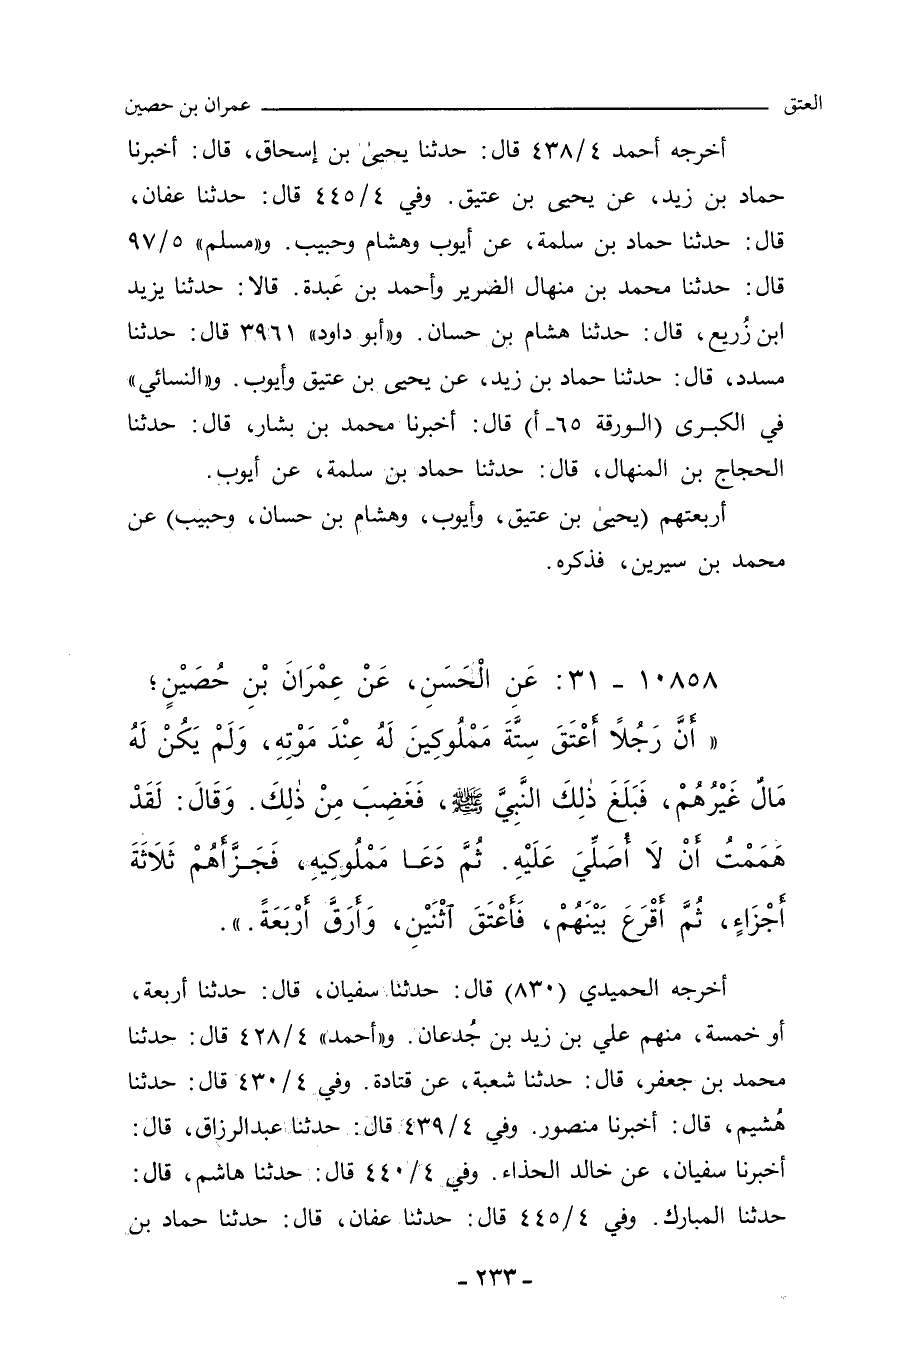 العتق ــــــــــ عمران بن حصين
أخرجه أحمد ٤٣٨/٤ قال: حدثنا يحيىٰ بن إسحاق، قال: أخبرنا
حماد بن زيد، عن يحيى بن عتيق. وفي ٤٤٥/٤ قال: حدثنا عفان،
قال: حدثنا حماد بن سلمة، عن أيوب وهشام وحبيب. و«مسلم» ٩٧/٥
قال: حدثنا محمد بن منهال الضرير وأحمد بن عَبدة. قالا: حدثنا يزيد
ابن زُريع، قال: حدثنا هشام بن حسان. و«أبو داود» ٣٩٦١ قال: حدثنا
مسدد، قال: حدثنا حماد بن زيد، عن يحيى بن عتيق وأيوب. و«النسائي»
في الكبرى (الورقة ٦٥ـ أ) قال: أخبرنا محمد بن بشار، قال: حدثنا
الحجاج بن المنهال، قال: حدثنا حماد بن سلمة، عن أيوب.
أربعتهم (يحيىٰ بن عتيق، وأيوب، وهشام بن حسان، وحبيب) عن
محمد بن سيرين، فذكره.
١٠٨٥٨ ـ ٣١: عَنِ الْحَسَنِ، عَنْ عِمْرَانَ بْنِ حُصَيْنٍ؛
« أَنَّ رَجُلاً أَعْتَقَ سِتَّةَ مَمْلُوكِينَ لَهُ عِنْدَ مَوْتِهِ، وَلَمْ يَكُنْ لَهُ
مَالٌ غَيْرُهُمْ، فَبَلَغَ ذٰلِكَ النَّبِيَّ ﷺ، فَغَضِبَ مِنْ ذٰلِكَ. وَقَالَ: لَقَدْ
هَمَمْتُ أَنْ لَا أُصَلِّيَ عَلَيْهِ. ثُمَّ دَعَا مَمْلُوكِيهِ، فَجَزَّأَهُمْ ثَلَاثَةَ
أَجْزَاءٍ، ثُمَّ أَقْرَعَ بَيْنَهُمْ، فَأَعْتَقَ ٱثْنَيْنِ، وَأَرَقَّ أَرْبَعَةً.».
أخرجه الحميدي (٨٣٠) قال: حدثنا سفيان، قال: حدثنا أربعة،
أو خمسة، منهم علي بن زيد بن جُدعان. و«أحمد» ٤٢٨/٤ قال: حدثنا
محمد بن جعفر، قال: حدثنا شعبة، عن قتادة. وفي ٤٣٠/٤ قال: حدثنا
هُشيم، قال: أخبرنا منصور. وفي ٤٣٩/٤ قال: حدثنا عبدالرزاق، قال:
أخبرنا سفيان، عن خالد الحذاء. وفي ٤٤٠/٤ قال: حدثنا هاشم، قال:
حدثنا المبارك. وفي ٤٤٥/٤ قال: حدثنا عفان، قال: حدثنا حماد بن
ـ ٢٣٣ ـ